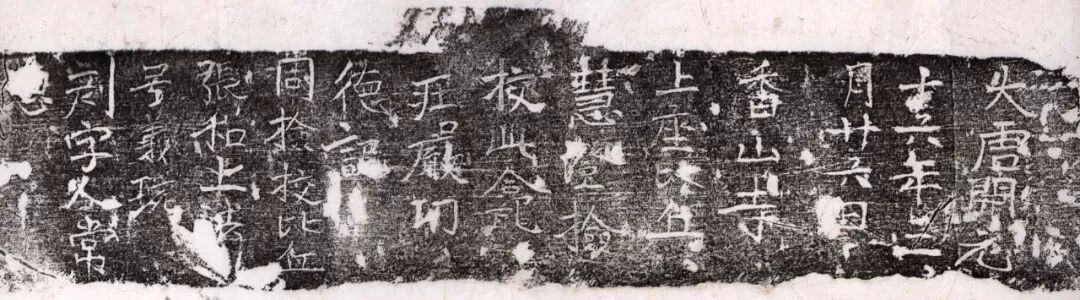 大唐開元
十六年二
月廿六日
香山寺
上座比丘
慧澄撿
校此龕
庄嚴功
德記
同撿校比丘
張和上
義琬
刻字人常